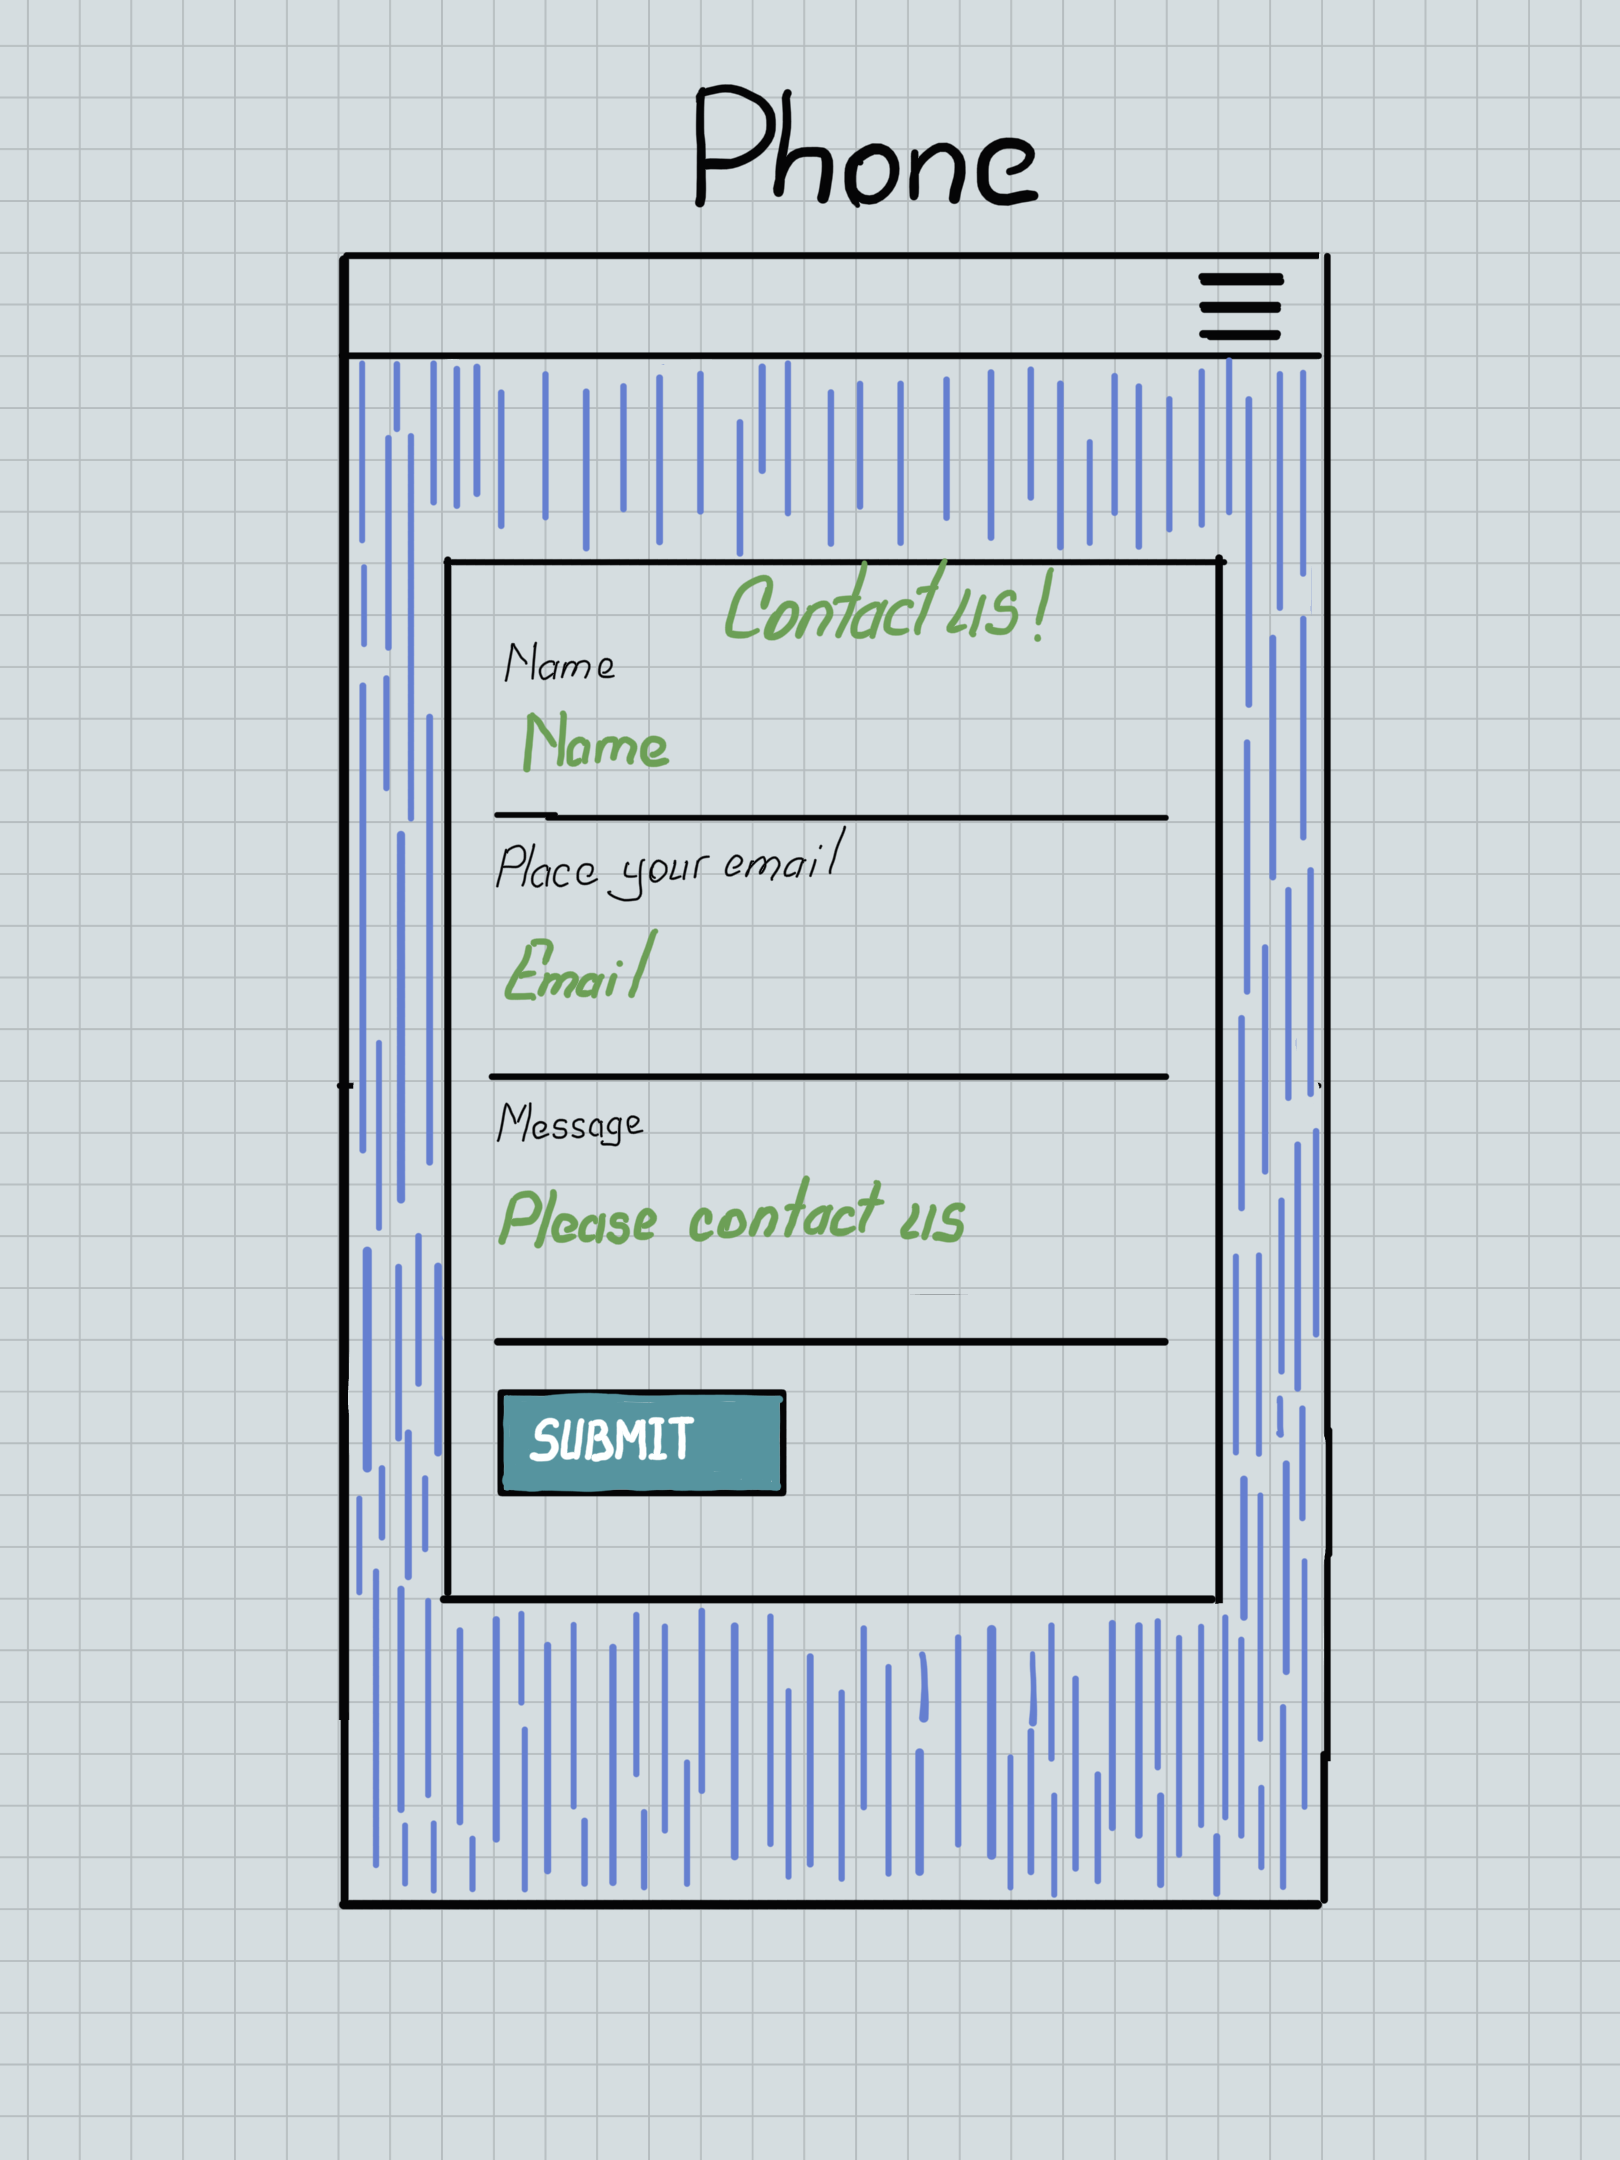 Phone
Contact us!
Name
Name
Place your email
Email
Message
Please contact us
SUBMIT